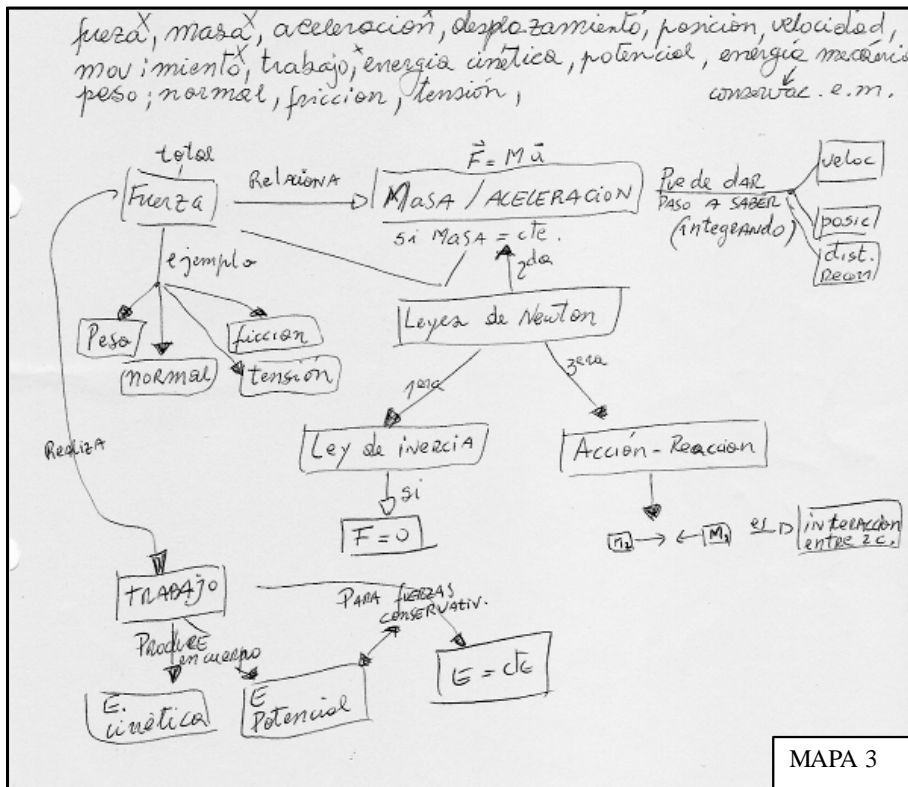 fueza x, masa x, aceleración x, desplazamiento, posicion, velocidad,
movimiento, trabajo x, energia cinética, potencial, energia mecánica
peso; normal, friccion, tensión, conservac. e.m.
total
Fuerza
Relaciona
F = M a
Masa / Aceleracion
si Masa = cte.
Puede dar
paso a saber
(integrando)
veloc
posic
dist.
Recorr
ejemplo
2da
Peso
ficcion
normal
tensión
Leyes de Newton
1era
3era
Realiza
Ley de inercia
Acción-Reaccion
si
F = 0
m2
M1
es
interaccion
entre 2 c.
Trabajo
Para fuerzas
conservativ.
Produce
en cuerpo
E = cte
E.
cinética
E
Potencial
MAPA 3